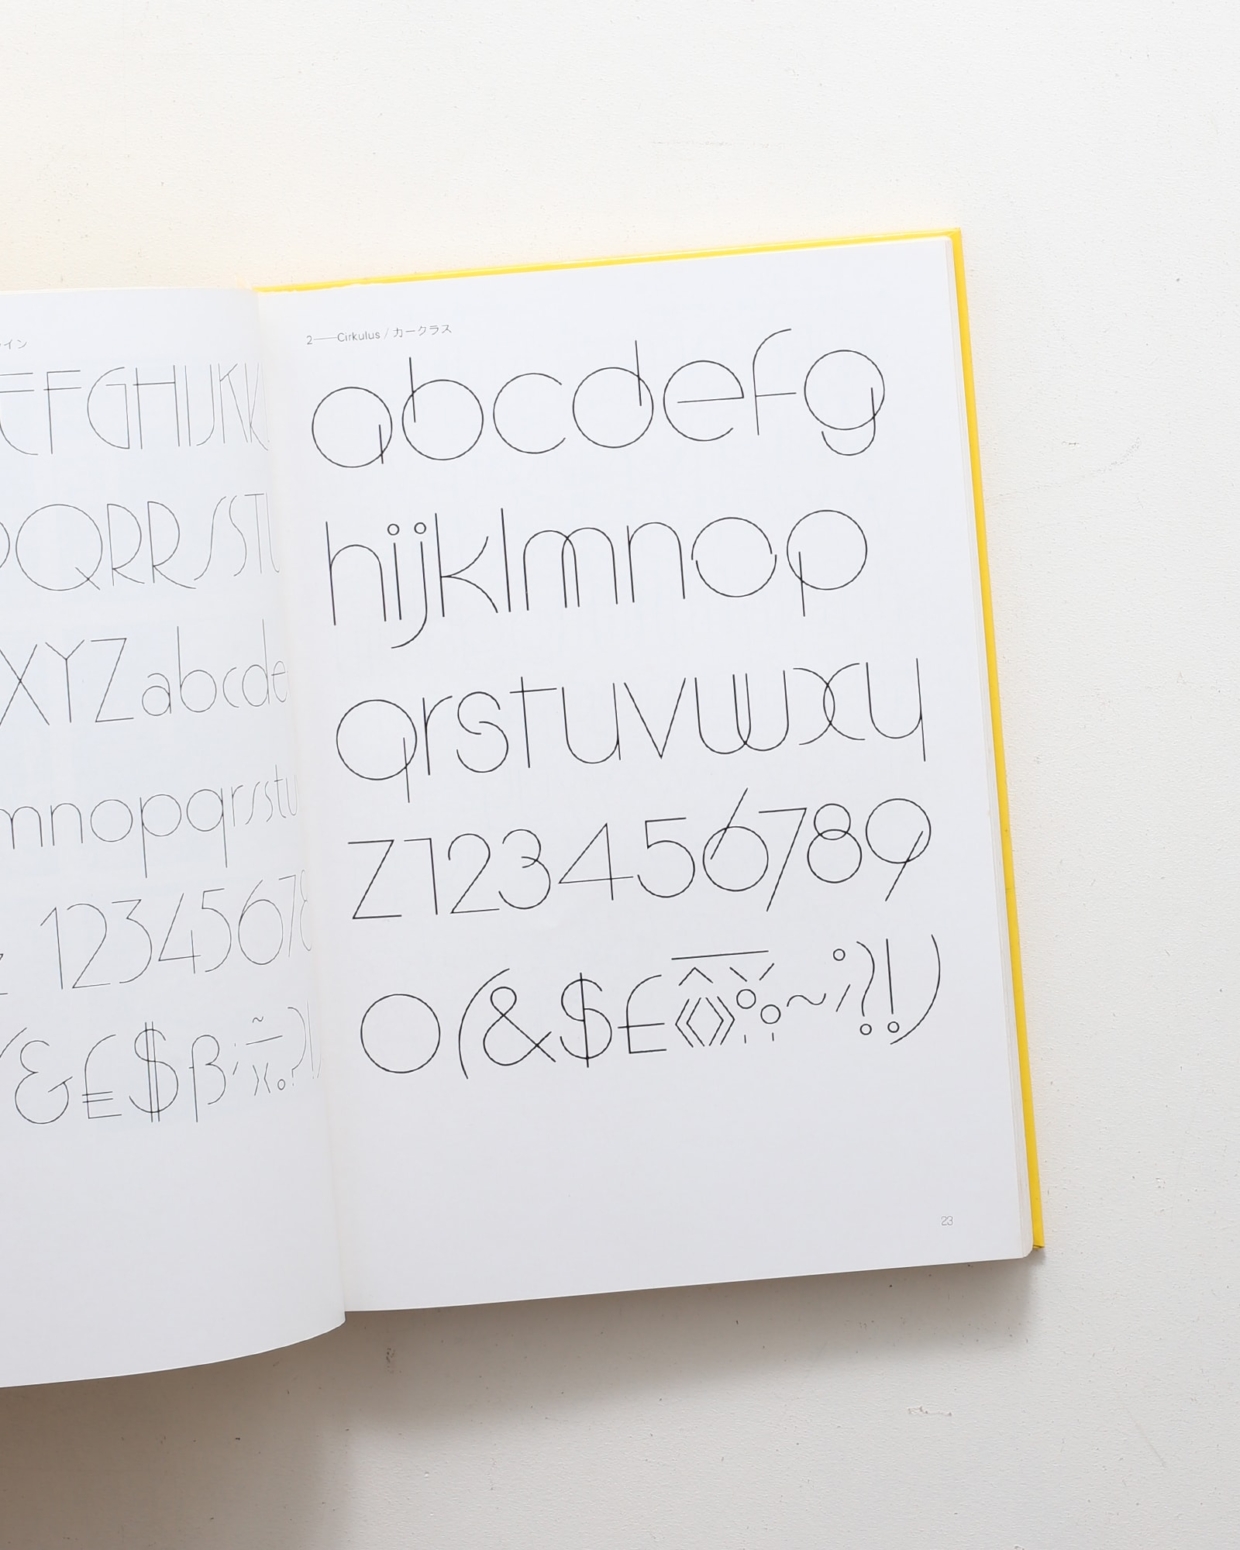 イン
EFGHIJKK
QRRSSTU
XYZabcde
mnopqrsstu
12345678
&£$β
2——Cirkulus / カークラス
abcdefg
hijklmnop
qrstuvwxy
z123456789
0(&$£‹›«»%~;?!)
23